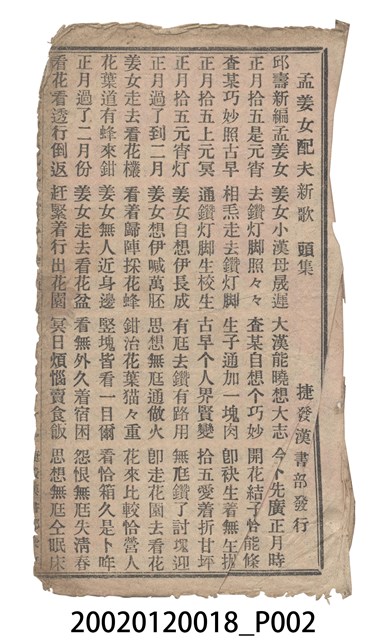 孟姜女配夫新歌 頭集 捷發漢書部發行
邱壽新編孟姜女 姜女小漢母晟遲 大漢能曉想大志 今卜先廣正月時
正月拾五是元宵 去鑽灯脚照々々 查某自想个巧妙 開花結子恰能條
查某巧妙照古早 相焏走去鑽灯脚 生子通加一塊肉 卽袂生着無乍
正月拾五上元冥 通鑽灯脚生校生 古早个人界賢變 拾五愛着折甘坪
正月拾五元宵灯 姜女自想伊長成 有尫去鑽有路用 無尫鑽了討塊迎
正月過了到二月 姜女想伊喊萬胚 思想無尫通做火 卽走花園去看花
姜女走去看花欉 看着歸陣採花蜂 鉗治花葉猫々重 花來比較恰營人
花葉道有蜂來鉗 姜女無人近身邊 竪塊皆看一目爾 看恰箱久是卜咩
正月過了二月份 姜女走去看花盆 看無外久着宿困 怨恨無尫失清春
看花看透行倒返 赶緊着行出花園 冥日煩惱賣食飯 思想無尫仝眠床
20020120018_P002